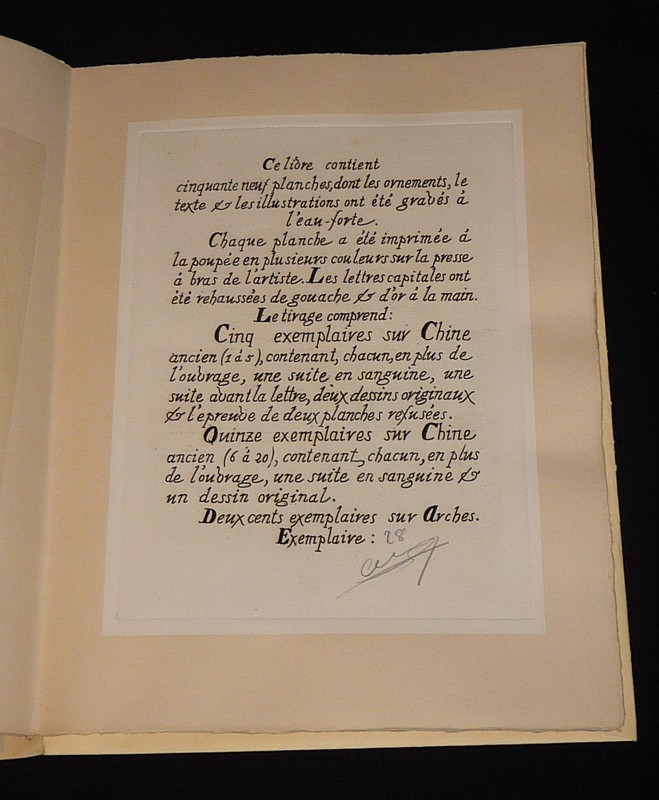 Ce livre contient
cinquante neuf planches, dont les ornements, le
texte & les illustrations ont été gravés á
l'eau-forte.
Chaque planche a été imprimée á
la poupée en plusieurs couleurs sur la presse
á bras de l'artiste. Les lettres capitales ont
été rehaussées de gouache & d'or á la main.
Le tirage comprend:
Cinq exemplaires sur Chine
ancien (1 á 5), contenant, chacun, en plus de
l'ouvrage, une suite en sanguine, une
suite avant la lettre, deux dessins originaux
& l'epreuve de deux planches refusées.
Quinze exemplaires sur Chine
ancien (6 á 20), contenant, chacun, en plus
de l'ouvrage, une suite en sanguine &
un dessin original.
Deux cents exemplaires sur Arches.
Exemplaire : 28